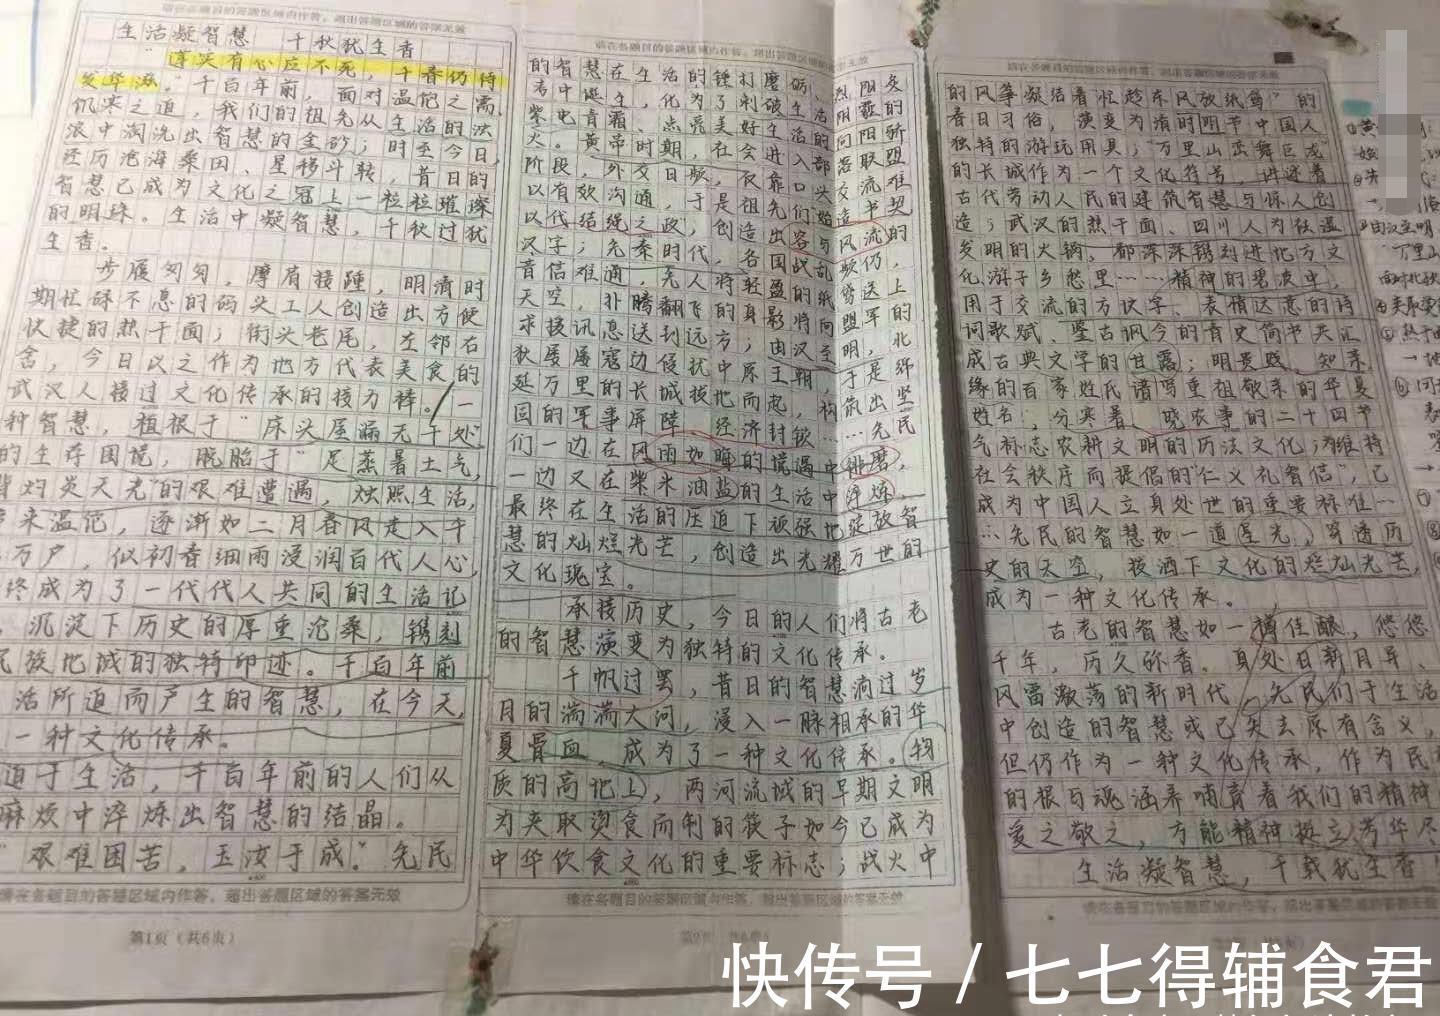 请在各题目的答题区域内作答，超出答题区域的答案无效
生活凝智慧 千秋犹生香
"莲实有心应不死，千春仍待
发华滋。"千百年前，面对温饱之需、
饥寒之迫，我们的祖先从生活的浊
浪中淘洗出智慧的金砂；时至今日，
经历沧海桑田、星移斗转，昔日的
智慧已成为文化之冠上一粒粒璀璨
的明珠。生活中凝智慧，千秋过犹
生香。
步履匆匆，摩肩接踵，明清时
期忙碌不息的码头工人创造出方便
快捷的热干面；街头巷尾，左邻右
舍，今日以之作为地方代表美食的
武汉人接过文化传承的接力棒。一
种智慧，植根于"床头屋漏无干处"
的生存困境，脱胎于"足蒸暑土气，
背灼炎天光"的艰难遭遇，烛照生活，
来温饱，逐渐如二月春风走入千
万户，似初春细雨浸润百代人心，
终成为了一代代人共同的生活记
，沉淀下历史的厚重沧桑，镌刻
民族地域的独特印迹。千百年前
活所迫而产生的智慧，在今天，
一种文化传承。
迫于生活，千百年前的人们从
麻烦中淬炼出智慧的结晶。
"艰难困苦，玉汝于成。"先民
请在各题目的答题区域内作答，超出答题区域的答案无效
第1页（共6页）
请在各题目的答题区域内作答，超出答题区域的答案无效
的智慧在生活的锤打磨砺、烈阳炙
考中诞生，化为了刺破生活阴霾的
紫电青霜、点亮美好生活的向阳骄
火。黄帝时期，社会进入部落联盟
阶段，外交日频，仅靠口头交流难
以有效沟通，于是祖先们始造书契
以代结绳之政，创造出容与风流的
汉字；先秦时代，各国战乱频仍，
音信难通，先人将轻盈的纸鸢送上
天空，扑腾翻飞的身影将向盟军的
求援讯息送到远方；由汉至明，北
狄屡屡寇边侵扰中原王朝，于是绵
延万里的长城拔地而起，构筑出坚
固的军事屏障、经济封锁……先民
们一边在风雨如晦的境遇中排磨，
一边又在柴米油盐的生活中淬炼，
最终在生活的压迫下被强地绽放智
慧的灿烂光芒，创造出光耀万世的
文化瑰宝。
承接历史，今日的人们将古老
的智慧演变为独特的文化传承。
千帆过罢，昔日的智慧淌过岁
月的湍湍大河，浸入一脉相承的华
夏骨血，成为了一种文化传承。物
质的高地上，两河流域的早期文明
为夹取烫食而制的筷子如今已成为
中华饮食文化的重要标志；战火中
请在各题目的答题区域内作答，超出答题区域的答案无效
请在各题目的答题区域内作答，超出答题区域的答案无效
的风筝凝结着"忙趁东风放纸鸢"的
春日习俗，演变为清明时节中国人
独特的游玩用具；"万里山峦舞巨龙"
的长城作为一个文化符号，讲述着
古代劳动人民的建筑智慧与惊人创
造；武汉的热干面、四川人为祛湿
发明的火锅，都深深镌刻进地方文
化，游子乡愁里……精神的碧波中，
用于交流的方块字、表情达意的诗
词歌赋、鉴古讽今的青史简书共汇
成古典文学的甘露；明贵贱、知亲
缘的百家姓氏谱写重祖敬亲的华夏
姓名；分寒暑、晓农事的二十四节
气标志农耕文明的历法文化；为维持
社会秩序而提倡的"仁义礼智信"，已
成为中国人立身处世的重要标准…
…先民的智慧如一道星光，穿透历
史的天空，投洒下文化的灿烂光芒，
成为一种文化传承。
古老的智慧如一樽佳酿，悠悠
千年，历久弥香。身处日新月异、
风雷激荡的新时代，先民们于生活
中创造的智慧或已失去原有含义，
但仍作为一种文化传承，作为民
的根与魂涵养哺育着我们的精神
爱之敬之，方能精神挺立，芳华尽
生活凝智慧，千载犹生香！
快传号 / 七七得辅食君